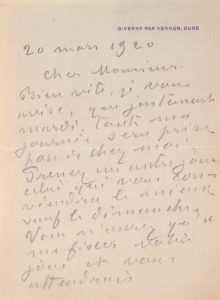 GIVERNY PAR VERNON, EURE
20 mars 1920
Cher Monsieur
Bien vite, je vous
avise, que justement
mardi toute ma
journée sera prise
pas de chez moi.
Prenez un autre jour
celui qui vous con-
viendra le mieux
sauf le dimanche,
Vous n'aurez qu'à
me fixer votre
jour et vous
attendrais